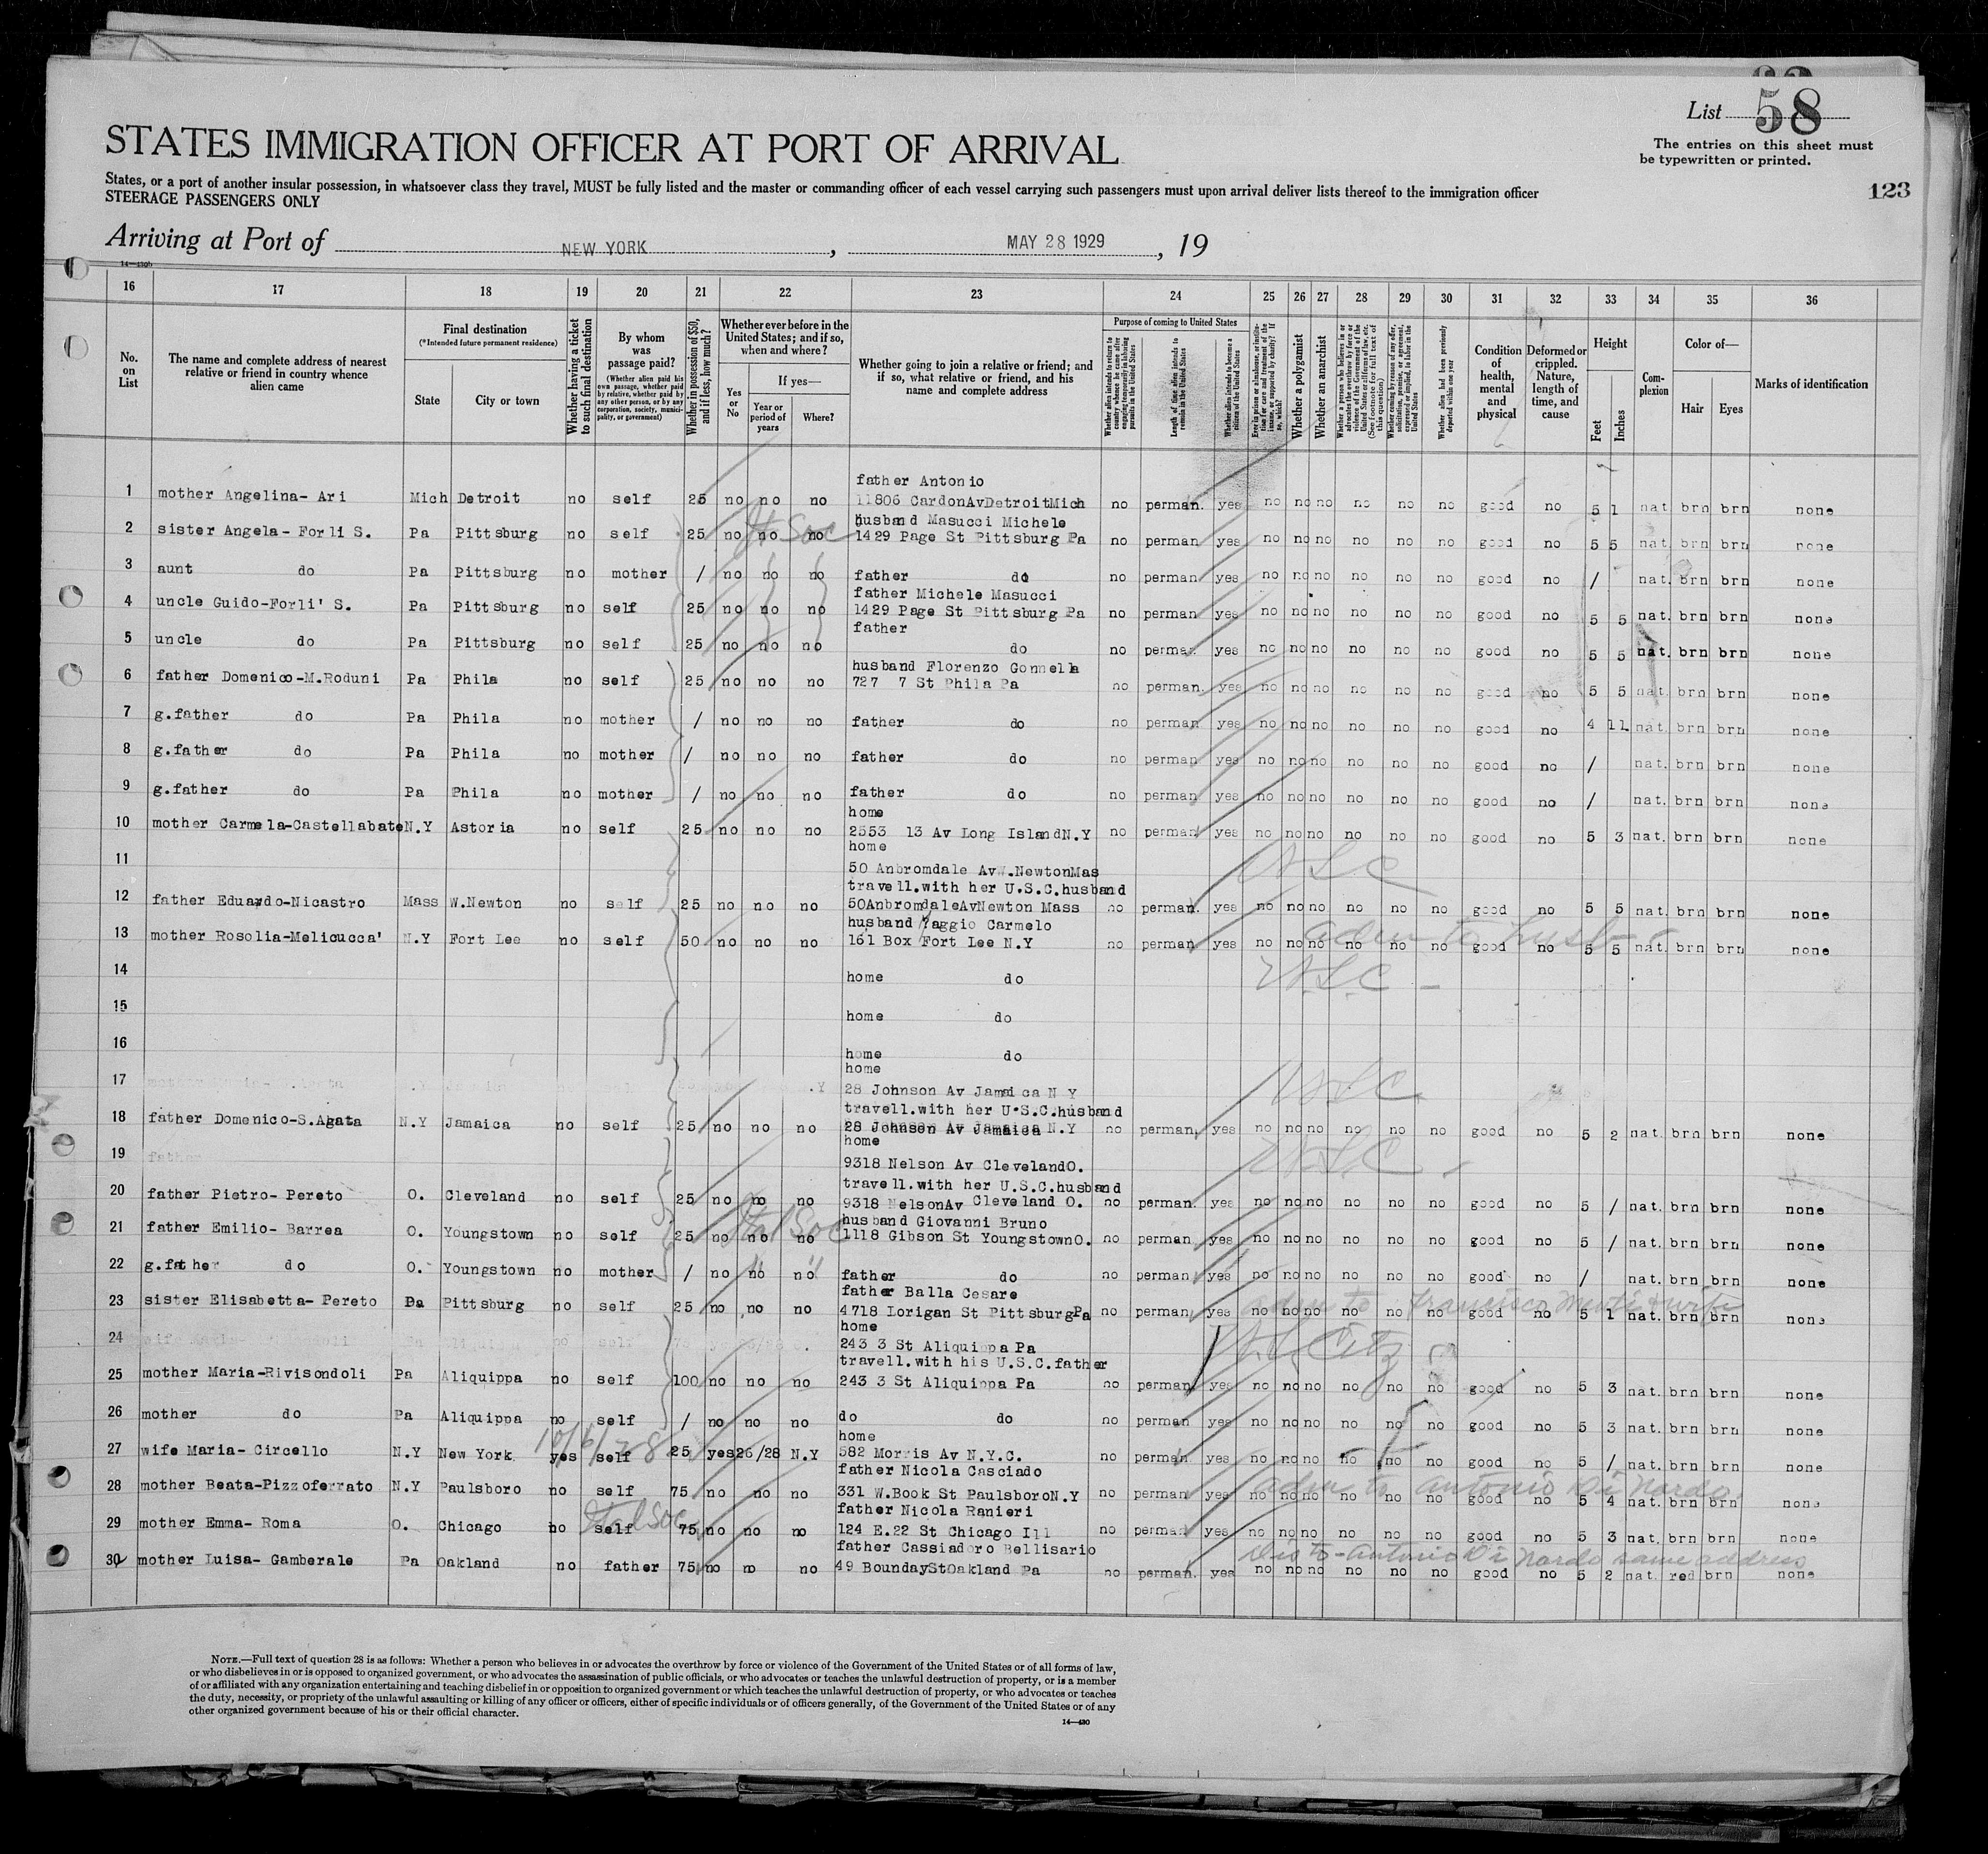 List 58
The entries on this sheet must
be typewritten or printed.
STATES IMMIGRATION OFFICER AT PORT OF ARRIVAL
States, or a port of another insular possession, in whatsoever class they travel, MUST be fully listed and the master or commanding officer of each vessel carrying such passengers must upon arrival deliver lists thereof to the immigration officer
STEERAGE PASSENGERS ONLY
123
Arriving at Port of NEW YORK, MAY 28 1929, 19
16 17 18 19 20 21 22 23 24 25 26 27 28 29 30 31 32 33 34 35 36
No. on List
The name and complete address of nearest relative or friend in country whence alien came
Final destination
(*Intended future permanent residence)
State
City or town
Whether having a ticket to such final destination
By whom was passage paid?
(Whether alien paid his own passage, whether paid by relative, whether paid by any other person, or by any corporation, society, municipality, or government)
Whether in possession of $50, and if less, how much?
Whether ever before in the United States; and if so, when and where?
Yes or No
If yes—
Year or period of years
Where?
Whether going to join a relative or friend; and if so, what relative or friend, and his name and complete address
Purpose of coming to United States
Whether alien intends to return to country whence he came after engaging temporarily in laboring pursuits in the United States
Length of time alien intends to remain in the United States
Whether alien intends to become a citizen of the United States
Whether a polygamist
Whether an anarchist
Whether alien had been previously deported within one year
Condition of health, mental and physical
Deformed or crippled. Nature, length of time, and cause
Height
Feet
Inches
Complexion
Color of—
Hair
Eyes
Marks of identification
1 mother Angelina- Ari Mich Detroit no self 25 no no no father Antonio 11806 CardonAvDetroitMich no perman. yes no no no no no no good no 5 1 nat brn brn none
2 sister Angela- Forli S. Pa Pittsburg no self 25 no no no husband Masucci Michele 1429 Page St Pittsburg Pa no perman yes no no no no no no good no 5 5 nat. brn brn none
3 aunt do Pa Pittsburg no mother / no no no father do no perman yes no no no no no no good no / nat. brn brn none
4 uncle Guido-Forli' S. Pa Pittsburg no self 25 no no no father Michele Masucci 1429 Page St Pittsburg Pa no perman yes no no no no no no good no 5 5 nat. brn brn none
5 uncle do Pa Pittsburg no self 25 no no no father do no perman yes no no no no no no good no 5 5 nat. brn brn none
6 father Domenico-M.Roduni Pa Phila no self 25 no no no husband Florenzo Gonnella 727 7 St Phila Pa no perman. yes no no no no no no good no 5 5 nat. brn brn none
7 g.father do Pa Phila no mother / no no no father do no perman yes no no no no no no good no 4 11 nat. brn brn none
8 g.father do Pa Phila no mother / no no no father do no perman yes no no no no no no good no / nat. brn brn none
9 g.father do Pa Phila no mother / no no no father do no perman yes no no no no no no good no / nat. brn brn none
10 mother Carmela-Castellabate N.Y Astoria no self 25 no no no home 2553 13 Av Long IslandN.Y no perman yes no no no no no no good no 5 3 nat. brn brn none
11 home 50 Anbromdale Av.W.NewtonMas
12 father Eduardo-Nicastro Mass W.Newton no self 25 no no no travell.with her U.S.C.husband 50AnbromdaleAvNewton Mass no perman. yes no no no no no no good no 5 5 nat. brn brn none
13 mother Rosolia-Melicucca' N.Y Fort Lee no self 50 no no no husband Yaggio Carmelo 161 Box Fort Lee N.Y no perman yes no no no no no no good no 5 5 nat. brn brn none
14 home do
15 home do
16 home do
17 home 28 Johnson Av Jamaica N Y
18 father Domenico-S.Agata N.Y Jamaica no self 25 no no no travell.with her U.S.C.husband 28 Johnson Av Jamaica N.Y no perman. yes no no no no no no good no 5 2 nat. brn brn none
19 father home 9318 Nelson Av ClevelandO.
20 father Pietro- Pereto O. Cleveland no self 25 no no no travell.with her U.S.C.husband 9318 NelsonAv Cleveland O. no perman. yes no no no no no no good no 5 / nat. brn brn none
21 father Emilio- Barrea O. Youngstown no self 25 no no no husband Giovanni Bruno 1118 Gibson St YoungstownO. no perman. yes no no no no no no good no 5 / nat. brn brn none
22 g.father do O. Youngstown no mother / no no no father do no perman yes no no no no no no good no / nat. brn brn none
23 sister Elisabetta- Pereto Pa Pittsburg no self 25 no no no father Balla Cesare 4718 Lorigan St PittsburgPa no perman. yes no no no no no no good no 5 1 nat. brn brn none
24 home 243 3 St Aliquippa Pa
25 mother Maria-Rivisondoli Pa Aliquippa no self 100 no no no travell.with his U.S.C.father 243 3 St Aliquippa Pa no perman yes no no no no no no good no 5 3 nat. brn brn none
26 mother do Pa Aliquippa no self / no no no do do no perman yes no no no no no no good no 5 3 nat. brn brn none
27 wife Maria- Circello N.Y New York yes self 25 yes 26/28 N.Y home 582 Morris Av N.Y.C. no perman. yes no no no no no no good no 5 / nat. brn brn none
28 mother Beata-Pizzoferrato N.Y Paulsboro no self 75 no no no father Nicola Casciado 331 W.Book St PaulsboroN.Y no perman yes no no no no no no good no 5 4 nat. brn brn none
29 mother Emma- Roma O. Chicago no self 75 no no no father Nicola Ranieri 124 E.22 St Chicago Ill no perman yes no no no no no no good no 5 3 nat. brn brn none
30 mother Luisa- Gamberale Pa Oakland no father 75 no no no father Cassiadoro Bellisario 49 BoundaySt Oakland Pa no perman. yes no no no no no no good no 5 2 nat. red brn none
NOTE.—Full text of question 28 is as follows: Whether a person who believes in or advocates the overthrow by force or violence of the Government of the United States or of all forms of law,
or who disbelieves in or is opposed to organized government, or who advocates the assassination of public officials, or who advocates or teaches the unlawful destruction of property, or is a member
of or affiliated with any organization entertaining and teaching disbelief in or opposition to organized government or which teaches the unlawful destruction of property, or who advocates or teaches
the duty, necessity, or propriety of the unlawful assaulting or killing of any officer or officers, either of specific individuals or of officers generally, of the Government of the United States or of any
other organized government because of his or their official character.
14—430